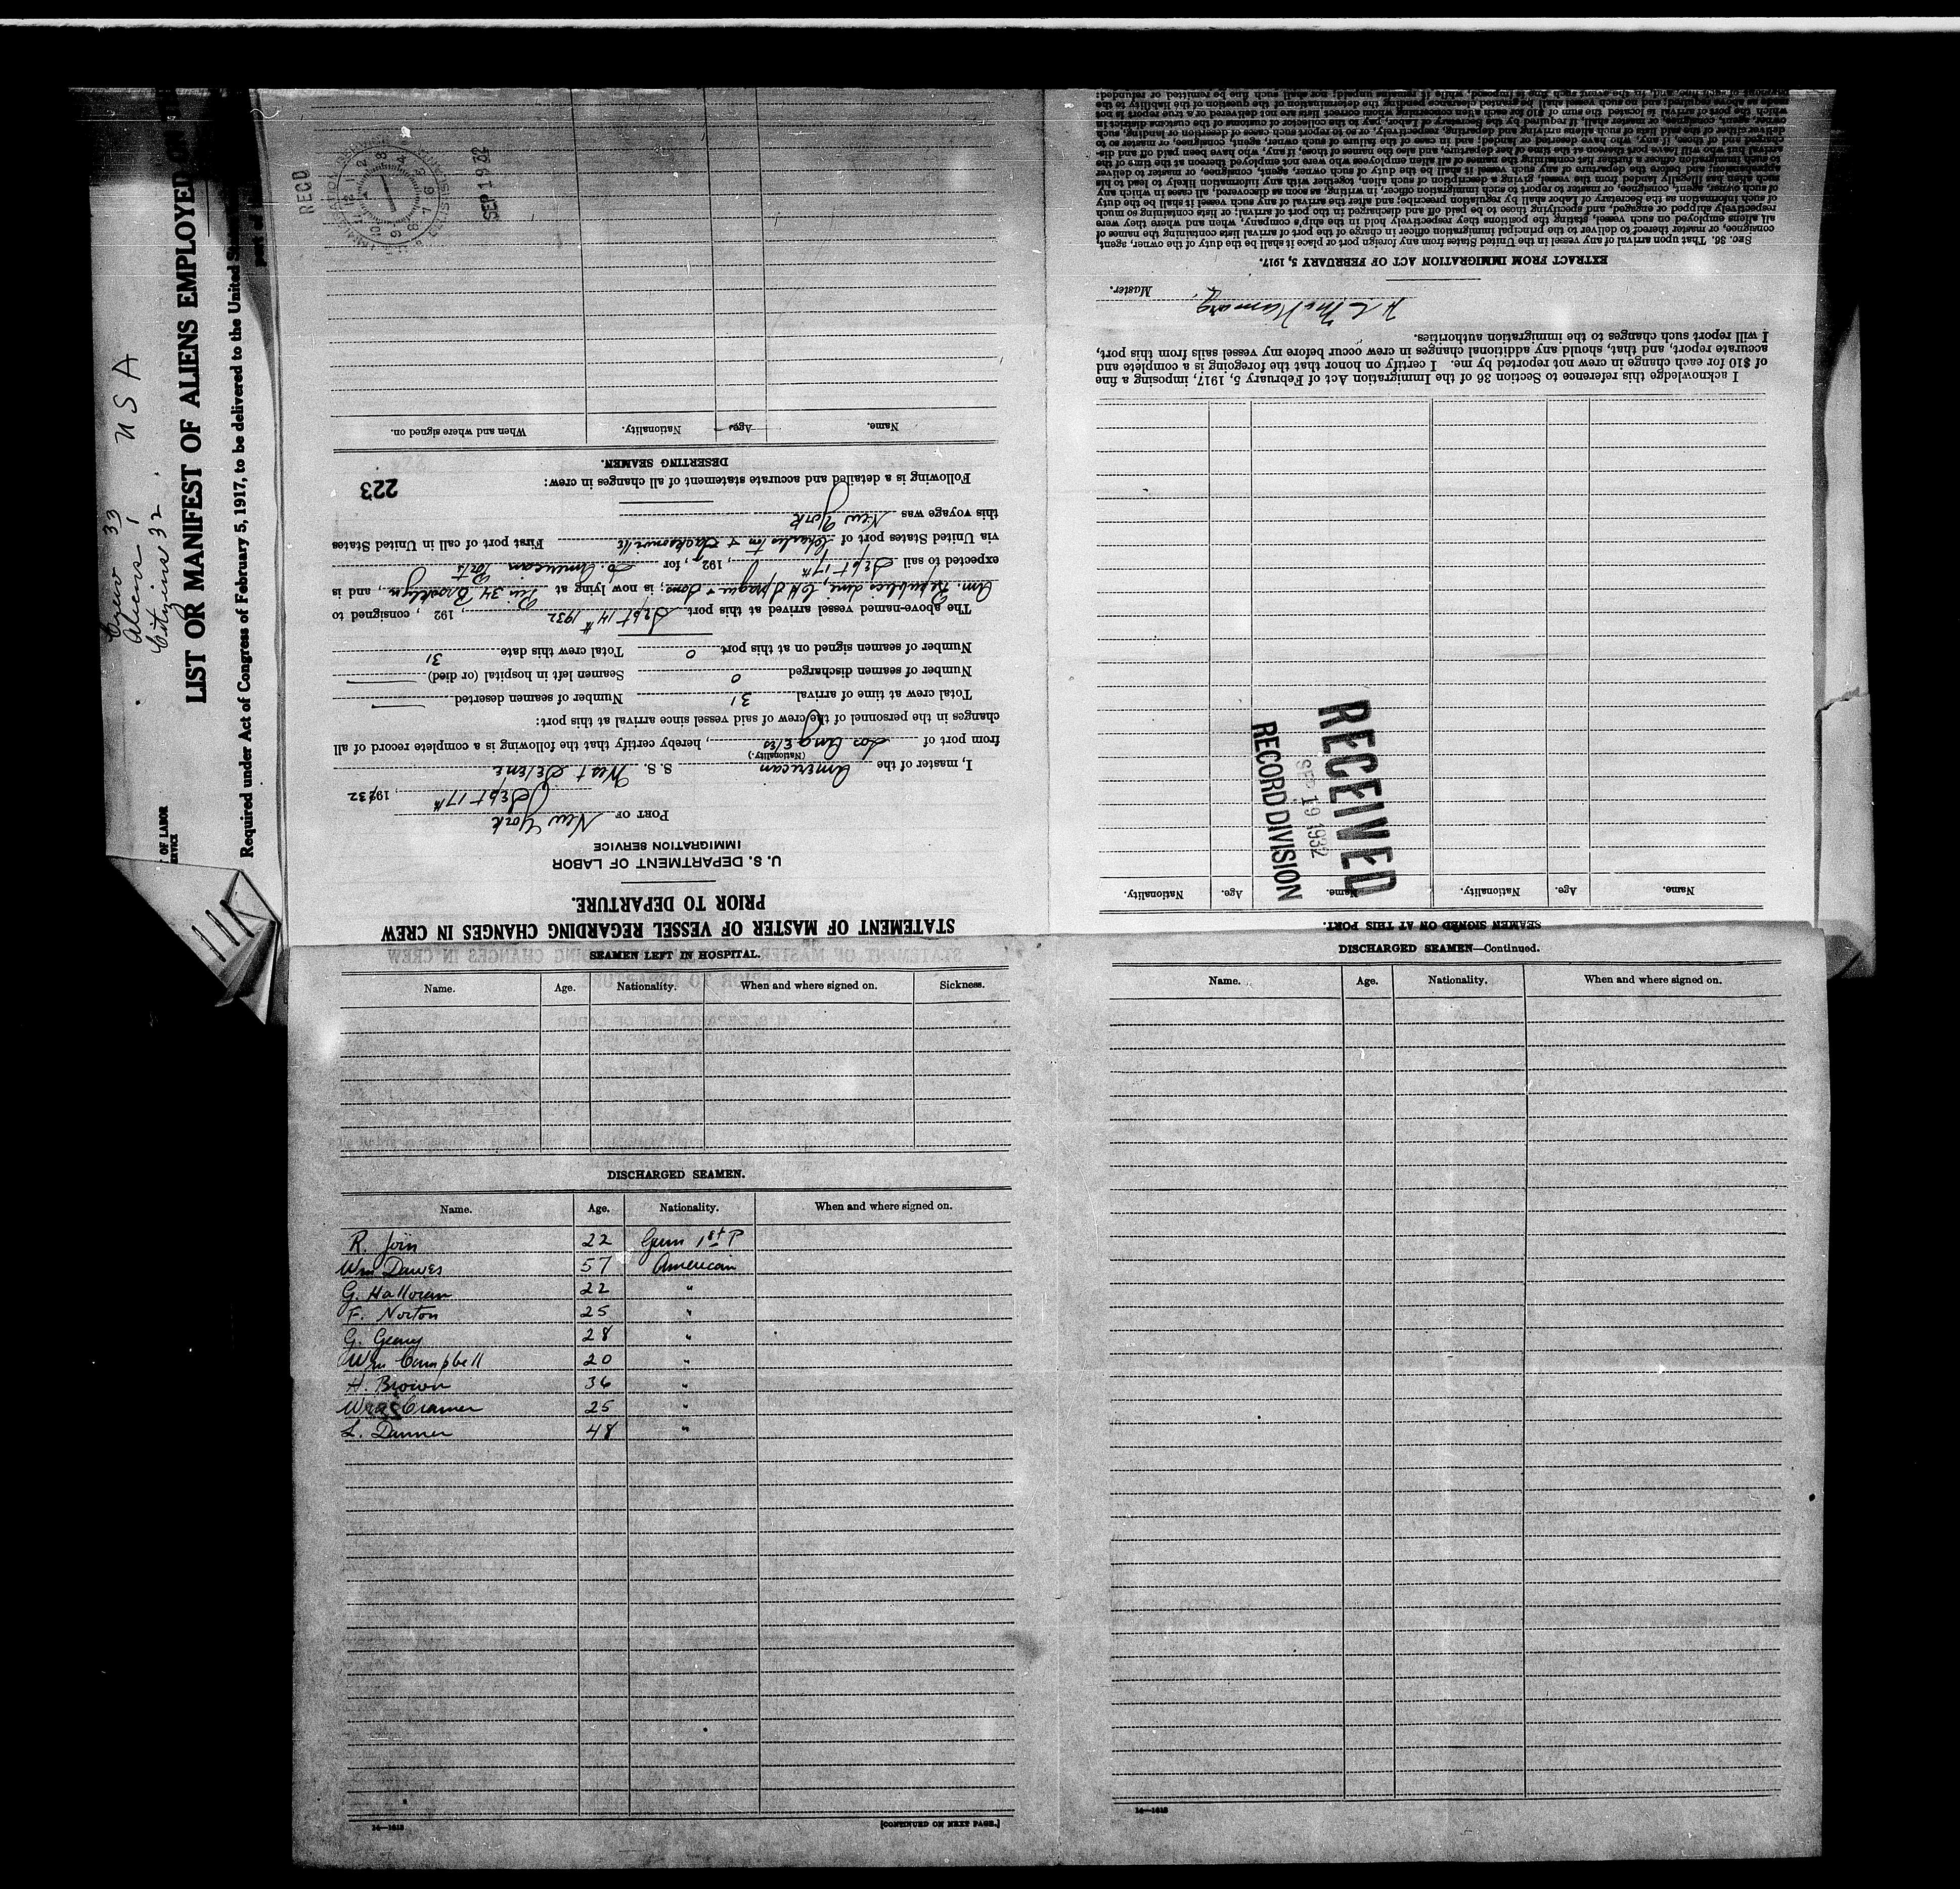 Crew 33
Aliens 1
Citizens 32
U S A
OF LABOR
LIST OR MANIFEST OF ALIENS EMPLOYED ON
Required under Act of Congress of February 5, 1917, to be delivered to the United
STATEMENT OF MASTER OF VESSEL REGARDING CHANGES IN CREW
PRIOR TO DEPARTURE.
U. S. DEPARTMENT OF LABOR
IMMIGRATION SERVICE
PORT OF New York
Sept 17th, 1932
I, master of the American S. S. West Selene
(Nationality.)
from port of Los Angeles, hereby certify that the following is a complete record of all
changes in the personnel of the crew of said vessel since arrival at this port:
Total crew at time of arrival 31 Number of seamen deserted
Number of seamen discharged 0 Seamen left in hospital (or died)
Number of seamen signed on at this port 0 Total crew this date 31
The above-named vessel arrived at this port, Sept 14th 1932, 192 , consigned to
Am. Republics Line, C H Sprague & Sons; is now lying at Pier 34 Brooklyn, and is
expected to sail Sept 17th, 192 , for So. American Ports
via United States port of Charleston & Jacksonville First port of call in United States
this voyage was New York
Following is a detailed and accurate statement of all changes in crew:
223
DESERTING SEAMEN.
Name. Age. Nationality. When and where signed on.
REC'D
SEP 19 32
SEAMEN SIGNED ON AT THIS PORT.
Name. Age. Nationality. Name. Age. Nationality.
RECEIVED
SEP 19 1932
RECORD DIVISION
I acknowledge this reference to Section 36 of the Immigration Act of February 5, 1917, imposing a fine
of $10 for each change in crew not reported by me. I certify on honor that the foregoing is a complete and
accurate report, and that, should any additional changes in crew occur before my vessel sails from this port,
I will report such changes to the immigration authorities.
Master.
EXTRACT FROM IMMIGRATION ACT OF FEBRUARY 5, 1917.
SEC. 36. That upon arrival of any vessel in the United States from any foreign port or place it shall be the duty of the owner, agent,
consignee, or master thereof to deliver to the principal immigration officer in charge of the port of arrival lists containing the names of
all aliens employed on such vessel, stating the positions they respectively hold in the ship's company, when and where they were
respectively shipped or engaged, and specifying those to be paid off and discharged in the port of arrival; or lists containing so much
of such information as the Secretary of Labor shall by regulation prescribe; and after the arrival of any such vessel it shall be the duty
of such owner, agent, consignee, or master to report to such immigration officer, in writing, as soon as discovered, all cases in which any
such alien has illegally landed from the vessel, giving a description of such alien, together with any information likely to lead to his
apprehension; and before the departure of any such vessel it shall be the duty of such owner, agent, consignee, or master to deliver
to such immigration officer a further list containing the names of all alien employees who were not employed thereon at the time of the
arrival but who will leave port thereon at the time of her departure, and also the names of those, if any, who have been paid off and dis-
charged, and of those, if any, who have deserted or landed; and in case of the failure of such owner, agent, consignee, or master so to
deliver either of the said lists of such aliens arriving and departing, respectively, or so to report such cases of desertion or landing, such
owner, agent, consignee, or master shall, if required by the Secretary of Labor, pay to the collector of customs of the customs district in
which the port of arrival is located the sum of $10 for each alien concerning whom correct lists are not delivered or a true report is not
made as above required; and no such vessel shall be granted clearance pending the determination of the question of the liability to the
SEAMEN LEFT IN HOSPITAL.
Name. Age. Nationality. When and where signed on. Sickness.
DISCHARGED SEAMEN.
Name. Age. Nationality. When and where signed on.
R. Join 22
Wm Dawes 57 American
G. Halloran 22 "
F. Norton 25 "
G. Geary 28 "
Wm Campbell 20 "
H. Brown 36 "
Cramer 25 "
L. Danner 48 "
14—1618
[CONTINUED ON NEXT PAGE.]
DISCHARGED SEAMEN—Continued.
Name. Age. Nationality. When and where signed on.
14—1618